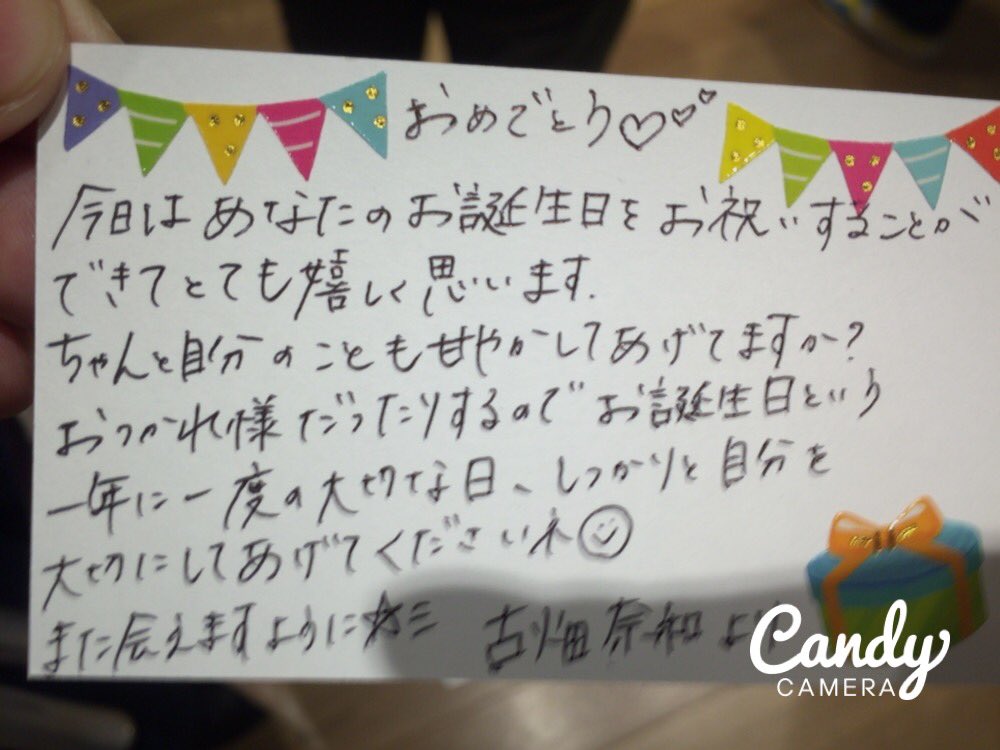 おめでとう♡♡♡
今日はあなたのお誕生日をお祝いすることが
できてとても嬉しく思います.
ちゃんと自分のことも甘やかしてあげてますか?
おつかれ様だったりするのでお誕生日という
一年に一度の大切な日、しっかりと自分を
大切にしてあげてくださいネ☺
また会えますように☆ミ 古畑奈和より
Candy
CAMERA